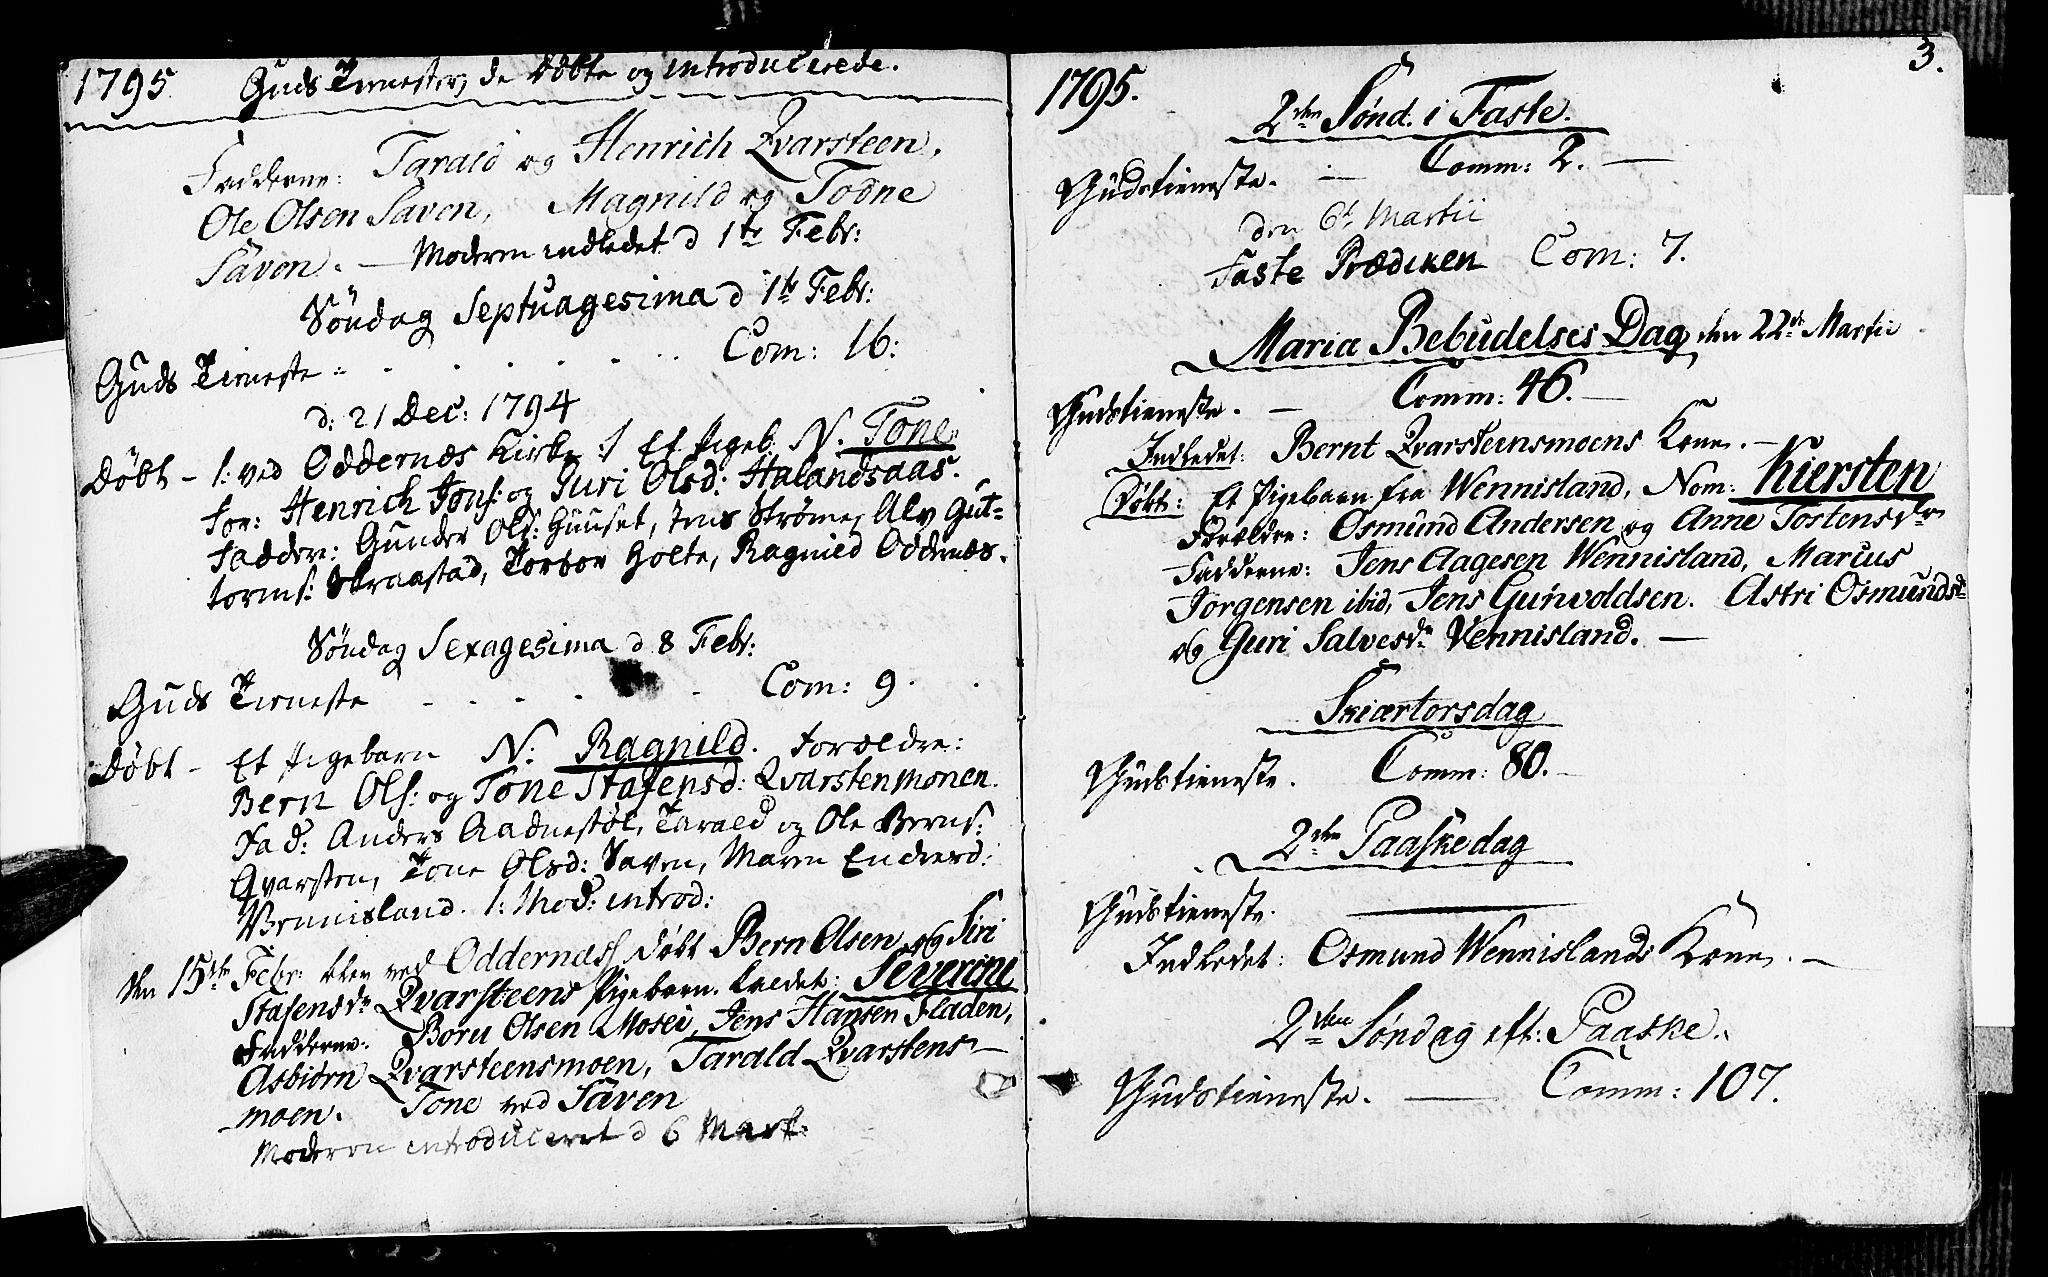 1795 Guds Tienester, de døbte og introducerede.
Fadderne: Tarald og Henrich Qvarsteen,
Ole Olsen Saven, Magnild og Todne
Säven. — Moderen indledet d 1te Febr:
Söndag Septuagesima d 1te Febr:
Guds Tieneste - - - - - Com: 16:
d: 21 Dec: 1794
Döbt - /: ved Oddernæs Kirke :/ Et Pigeb. N. Tone
For: Henrich Jons: og Guri Olsd: Halandsaas.
Fadder: Gunder Ols: Huuset, Jens Strömme, Alv Gut=
torms: Skraastad, Torbor Holte, Ragnild Oddernæs.
Söndag Sexagesima d 8 Febr:
Guds Tieneste - - - - - Com: 9.
Döbt - Et Pigebarn N: Ragnild. Forældre:
Bern Ols: og Tone Stafensd: Qvarstenmonen.
Fad: Anders Aadnestöl, Tarald og Ole Berns:
Qvarsten, Tone Olsd: Saven, Maren Enchersd:
Vennisland. /: Mod: introd:
Den 15de Febr: blev ved Oddernæs döbt Bern Olsen og Siri
Stafensdr Qvarsteens Pigebarn. kaldet: Severine
Fadderne: Boru Olsen Mosei, Jens Hansen Fladen,
Asbiörn Qvarsteensmoen, Tarald Qvarstens-
moen. Tone ved Säven
Moderen introduceret d 6 Mart:
3.
1795.
2den Sønd. i Faste.
Gudstieneste. — Comm: 2. —
den 6te Martii
Faste Prædiken Com: 7.
Mariæ Bebudelses Dag den 22de Martii
Gudstieneste. — Comm: 46. —
Indledet: Bernt Qvarsteensmoens Kone. —
Døbt: Et Pigebarn fra Wennisland, Nom: Kiersten
Forældre: Osmund Andersen og Anne Tostensdr
Fadderne: Jens Aagesen Wennisland, Marcus
Jørgensen ibid, Jens Gunvoldsen. Astri Osmundsdr
og Guri Salvesdr Vennisland. —
Skiærtorsdag
Gudstieneste. Comm: 80. —
2den Paaskedag
Gudstieneste. —
Indledet: Osmund Wennislands Kone. —
2den Søndag eft: Paaske.
Gudstieneste. — Comm: 107.